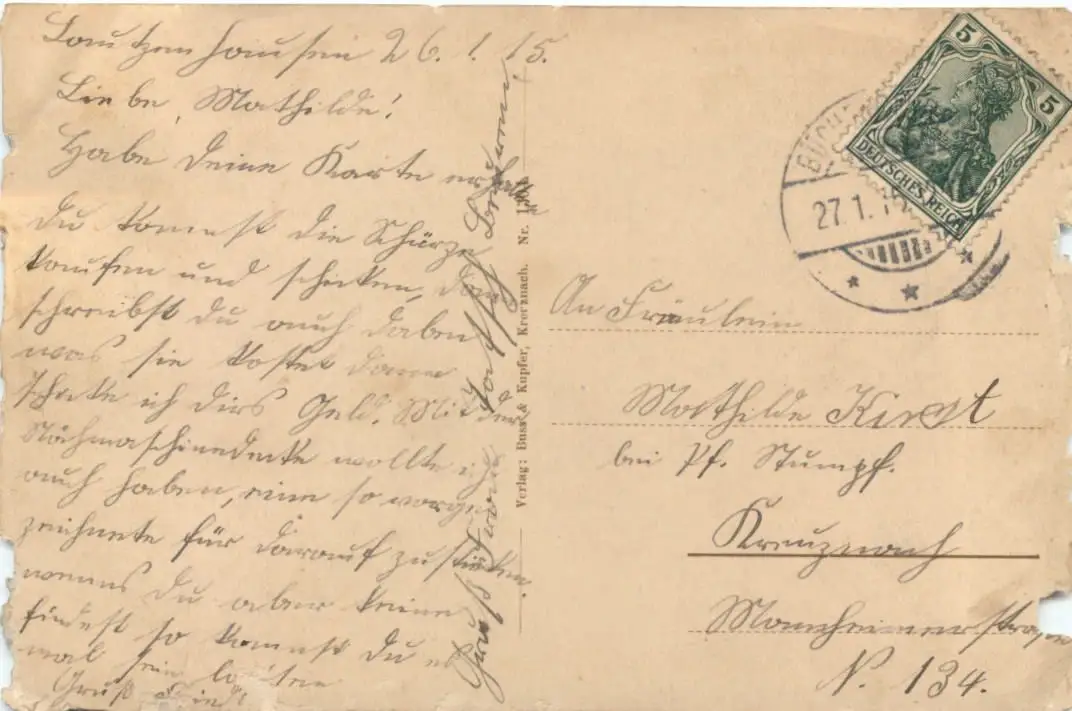 Lautzenhausen 26.1.15.
Liebe Mathilde!
Habe deine Karte erhalten
du kannst die Schürze
kaufen und schicken, dan
schreibst du auch daben
was sie kostet dann
schicke ich dirs Geld. Mit der
Nähmaschinendecke wollte ich
auch haben, eine so vorge
zeichnete für darauf zu sticken.
wenns du aber keine
findest so kannst du es
mal sein lassen
Gruß
Gruß
Verlag: Buss & Kupfer, Kreuznach. Nr.
5
5
DEUTSCHES REICH
27.1.15
An Fräulein
Mathilde Kirst
bei Pf. Stumpf.
Kreuznach
Mannheimerstraße
N. 134.